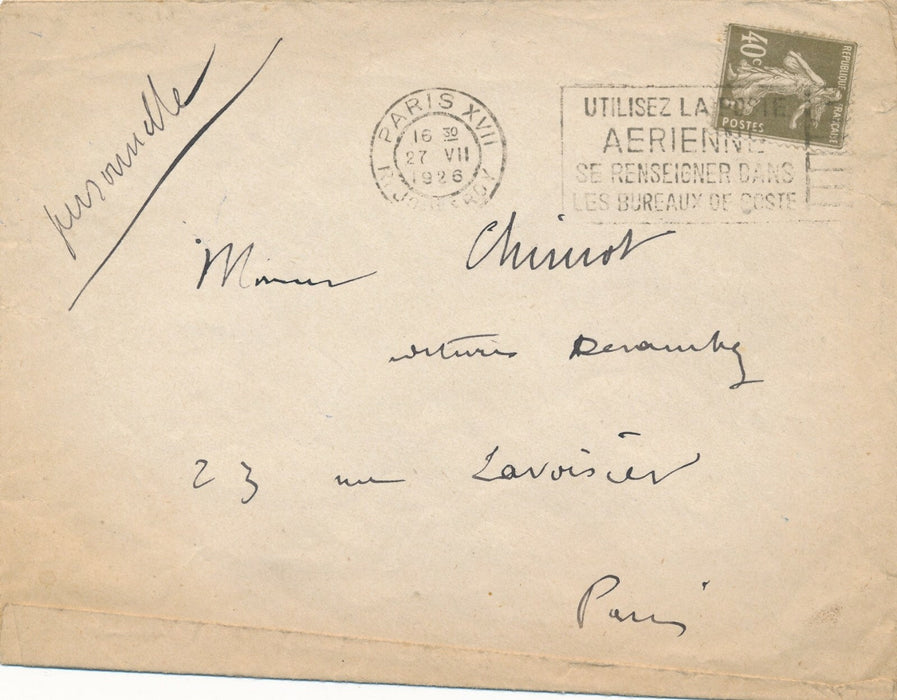 personnelle
PARIS XVII
16 30
27 VII
1926
R. JOUFFROY
UTILISEZ LA POSTE
AERIENNE
SE RENSEIGNER DANS
LES BUREAUX DE POSTE
40c
REPUBLIQUE FRANCAISE
POSTES
Monsieur Chimot
voitures
23 rue Lavoisier
Paris